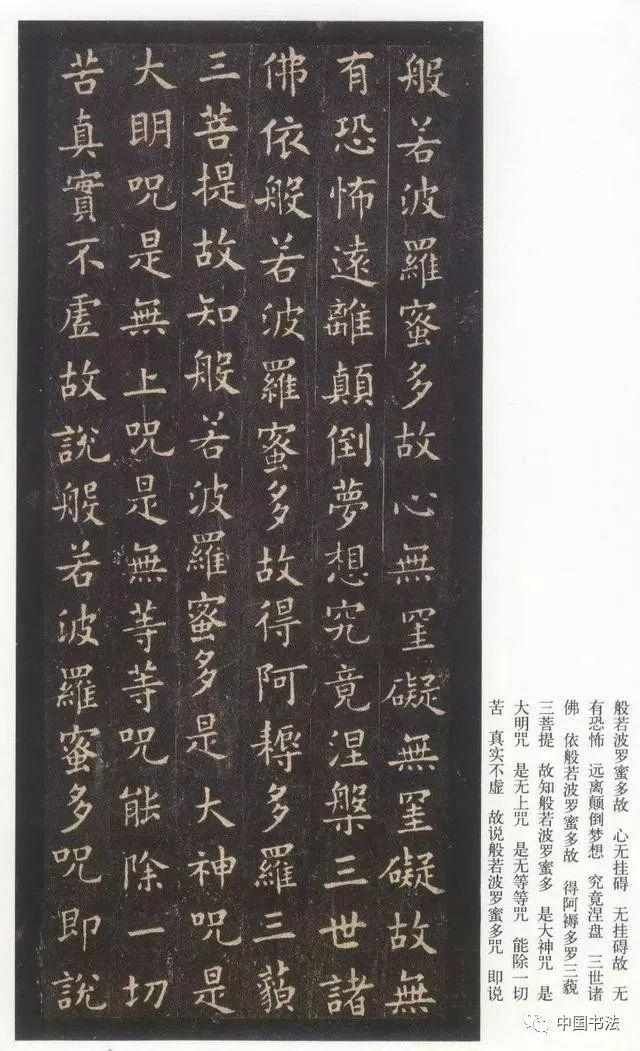 般若波羅蜜多故心無罣礙無罣礙故無
有恐怖遠離顛倒夢想究竟涅槃三世諸
佛依般若波羅蜜多故得阿耨多羅三藐
三菩提故知般若波羅蜜多是大神咒是
大明咒是無上咒是無等等咒能除一切
苦真實不虛故說般若波羅蜜多咒即說
般若波罗蜜多故 心无挂碍 无挂碍故 无
有恐怖 远离颠倒梦想 究竟涅盘 三世诸
佛 依般若波罗蜜多故 得阿褥多罗三藐
三菩提 故知般若波罗蜜多 是大神咒 是
大明咒 是无上咒 是无等等咒 能除一切
苦 真实不虚 故说般若波罗蜜多咒 即说
中国书法